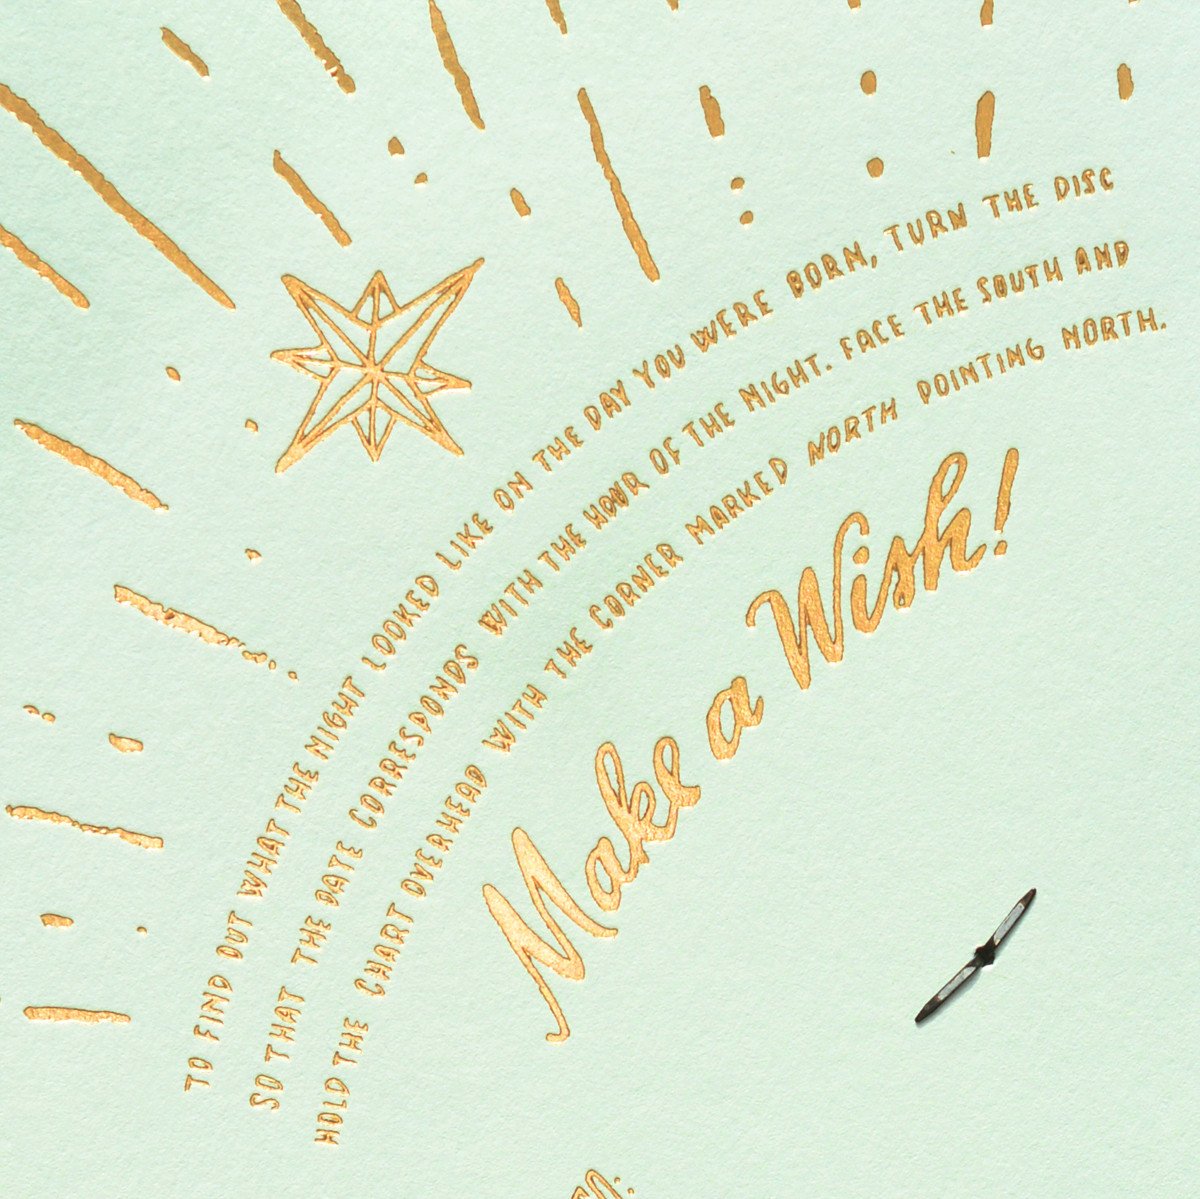 TO FIND OUT WHAT THE NIGHT LOOKED LIKE ON THE DAY YOU WERE BORN, TURN THE DISC
SO THAT THE DATE CORRESPONDS WITH THE HOUR OF THE NIGHT. FACE THE SOUTH AND
HOLD THE CHART OVERHEAD WITH THE CORNER MARKED NORTH POINTING NORTH.
Make a Wish!